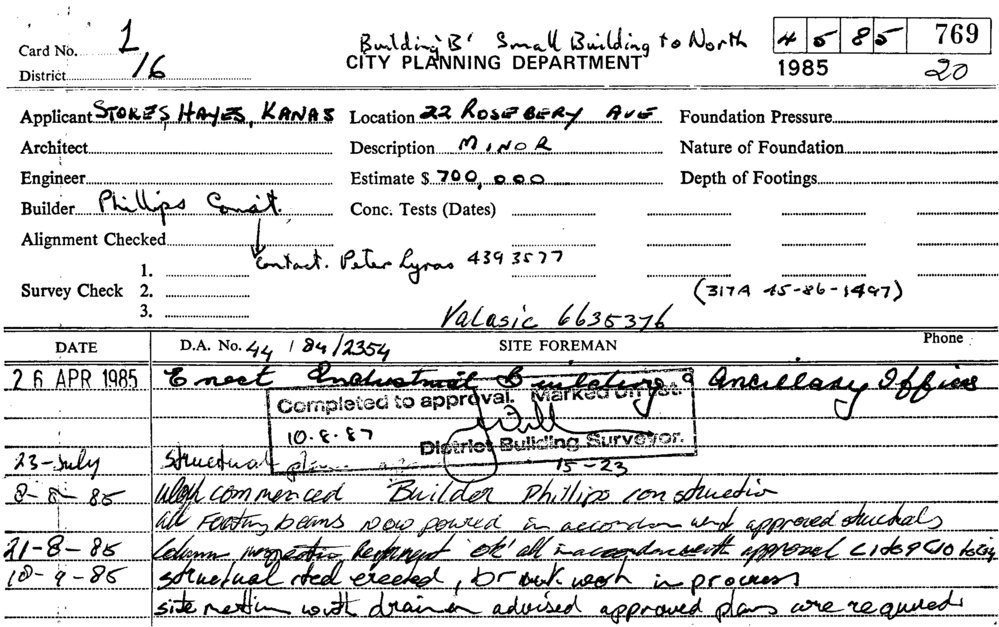 Card No. 1
District 16
Building 'B' Small Building to North
CITY PLANNING DEPARTMENT
45 85 769
1985 20
Applicant STOKES, HAYES, KANAS Location 22 ROSEBERY AVE Foundation Pressure
Architect Description MINOR Nature of Foundation
Engineer Estimate $ 700,000 Depth of Footings
Builder Phillips Const. Conc. Tests (Dates)
Alignment Checked
Contact. Peter Lyras 439 3577
Survey Check 1. 2. 3.
(317A 45-86-1497)
Valasic 6635376
DATE D.A. No. 44 / 84 / 2354 SITE FOREMAN Phone
26 APR 1985 Erect Industrial Building & Ancillary Offices
Completed to approval. Marked on
10.8.87
District Building Surveyor.
23-July Structural plans 15-23
8-8-85 Work commenced Builder Phillips construction
all Footing beams now poured in accordance with approved structurals
21-8-85 Column inspection 'OK' all in accordance with approval
10-9-85 structural steel erected, brick work in process
site meeting with drainer advised approved plans are required